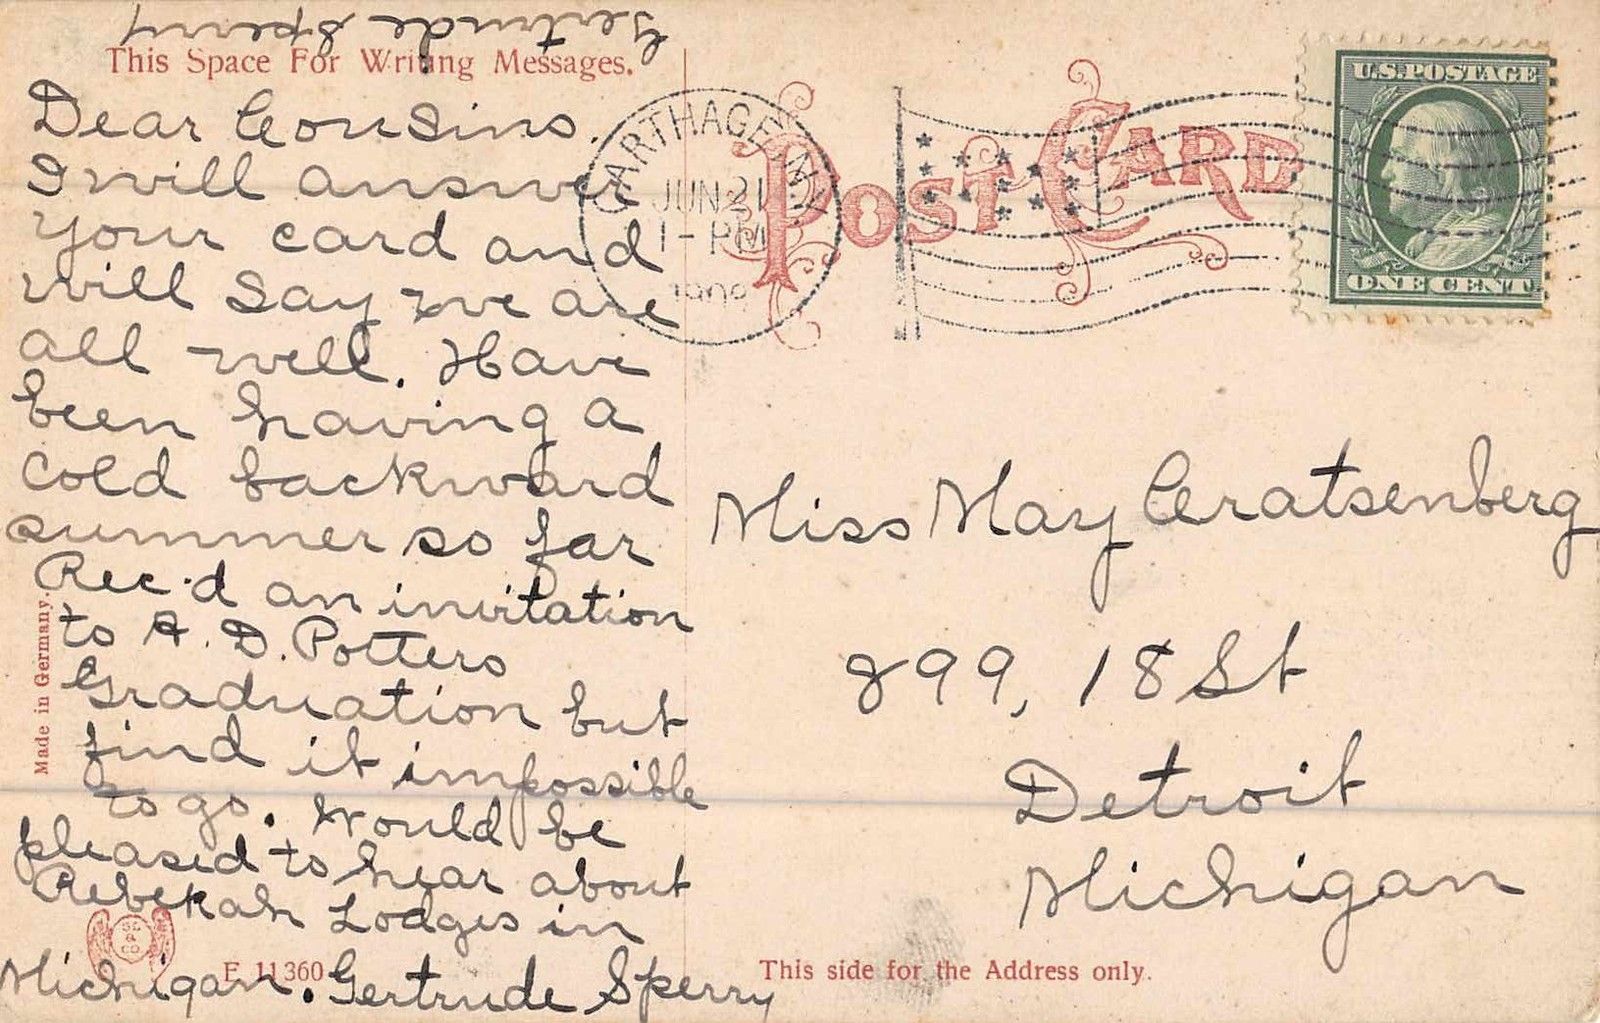 Gertrude Sperry
This Space For Writing Messages.
Dear Cousins.
I will answer
your card and
will say we are
all well. Have
been having a
cold backward
summer so far
Rec'd an invitation
to A. D. Potters
Graduation but
find it impossible
to go. Would be
pleased to hear about
Rebekah Lodges in
Michigan. Gertrude Sperry
Made in Germany.
E 11360
POST CARD
CARTHAGE, N.Y.
JUN 21
1 - PM
1909
U.S. POSTAGE
ONE CENT
Miss May
899, 18 St
Detroit
Michigan
This side for the Address only.